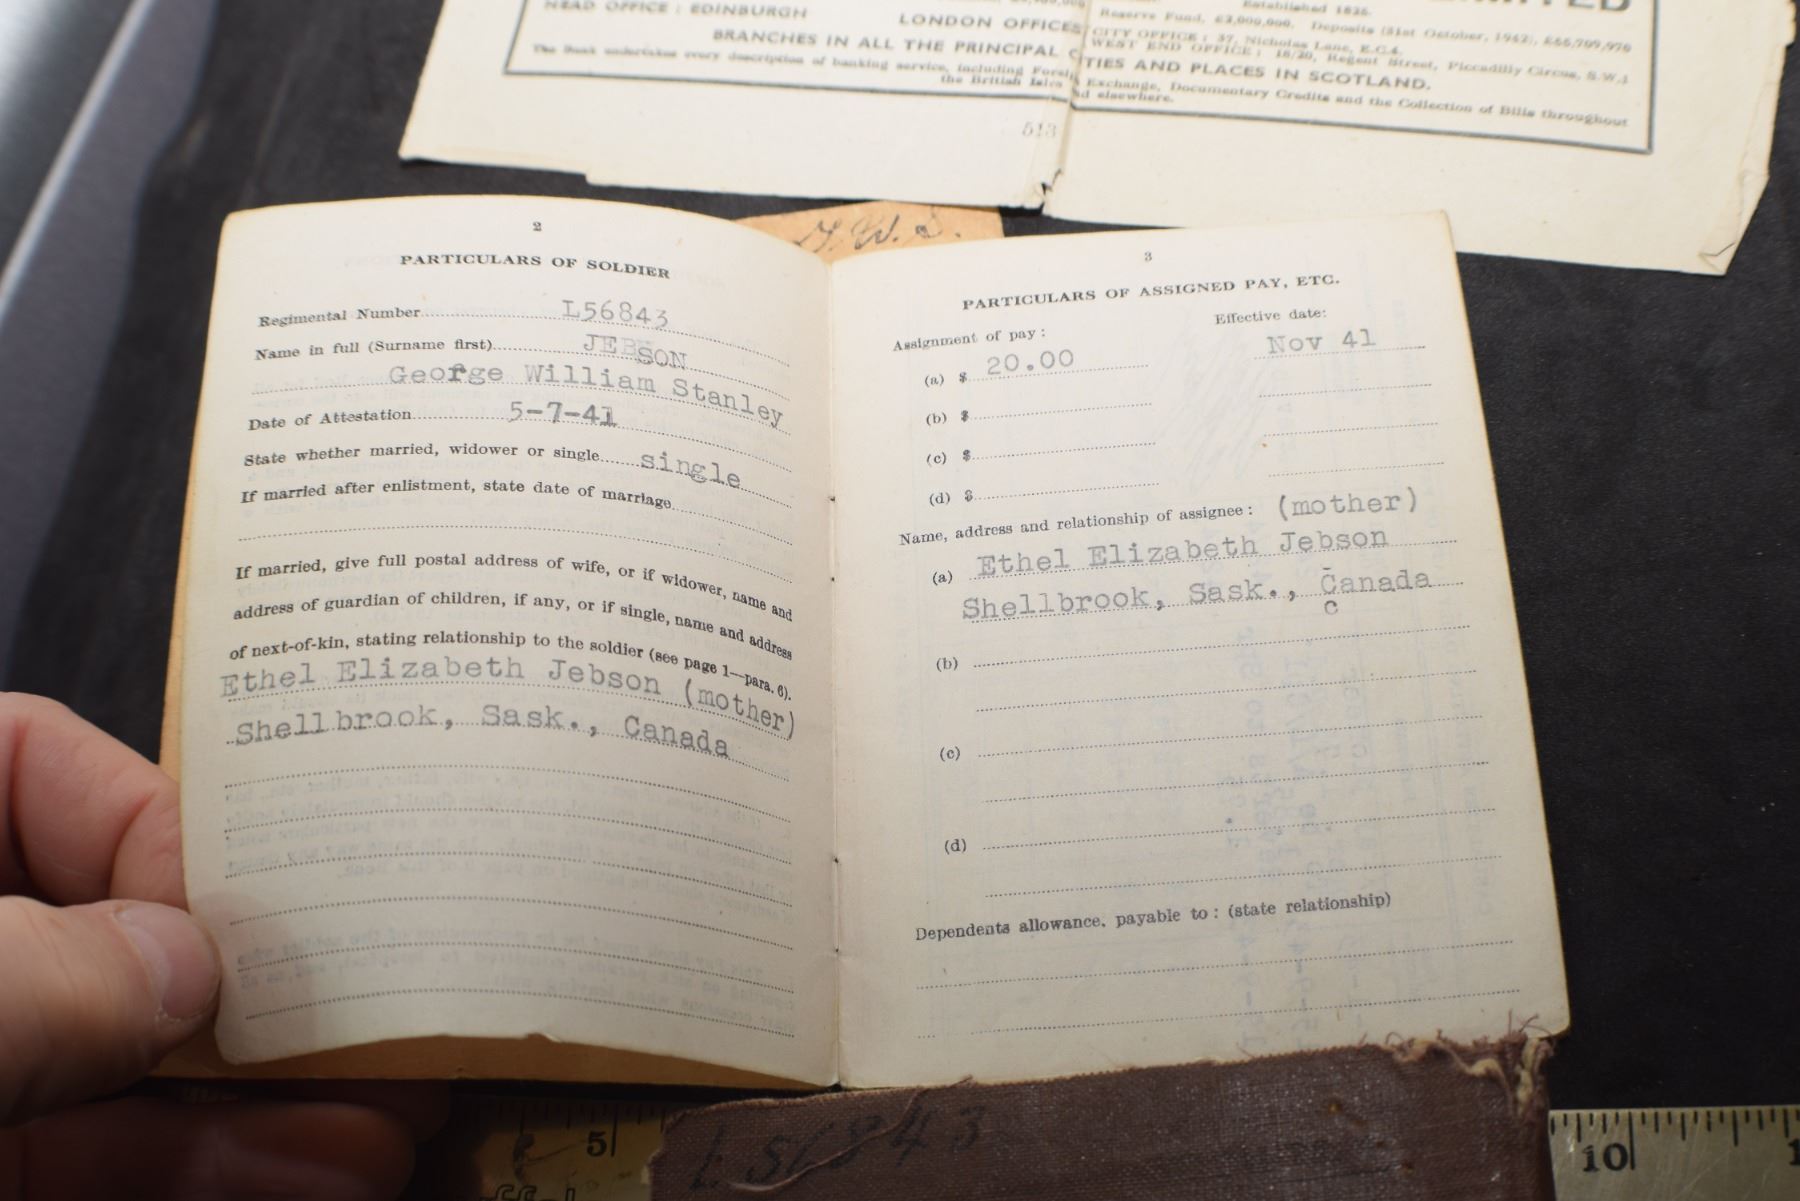 HEAD OFFICE : EDINBURGH
LONDON OFFICES
BRANCHES IN ALL THE PRINCIPAL C
The Bank undertakes every description of banking service, including Foreig
the British Isles
513
LIMITED
Established 1825.
Reserve Fund, £3,000,000. Deposits (31st October, 1942), £66,709,970
CITY OFFICE : 37, Nicholas Lane, E.C.4.
WEST END OFFICE : 18/20, Regent Street, Piccadilly Circus, S.W.1
TIES AND PLACES IN SCOTLAND.
Exchange, Documentary Credits and the Collection of Bills throughout
nd elsewhere.
2
PARTICULARS OF SOLDIER
Regimental Number L56843
Name in full (Surname first) JEBSON
George William Stanley
Date of Attestation 5-7-41
State whether married, widower or single single
If married after enlistment, state date of marriage
If married, give full postal address of wife, or if widower, name and
address of guardian of children, if any, or if single, name and address
of next-of-kin, stating relationship to the soldier (see page 1—para. 6).
Ethel Elizabeth Jebson (mother)
Shellbrook, Sask., Canada
3
PARTICULARS OF ASSIGNED PAY, ETC.
Assignment of pay : Effective date:
(a) $ 20.00 Nov 41
(b) $
(c) $
(d) $
Name, address and relationship of assignee : (mother)
(a) Ethel Elizabeth Jebson
Shellbrook, Sask., Canada
c
(b)
(c)
(d)
Dependents allowance, payable to : (state relationship)
L56843
5
10